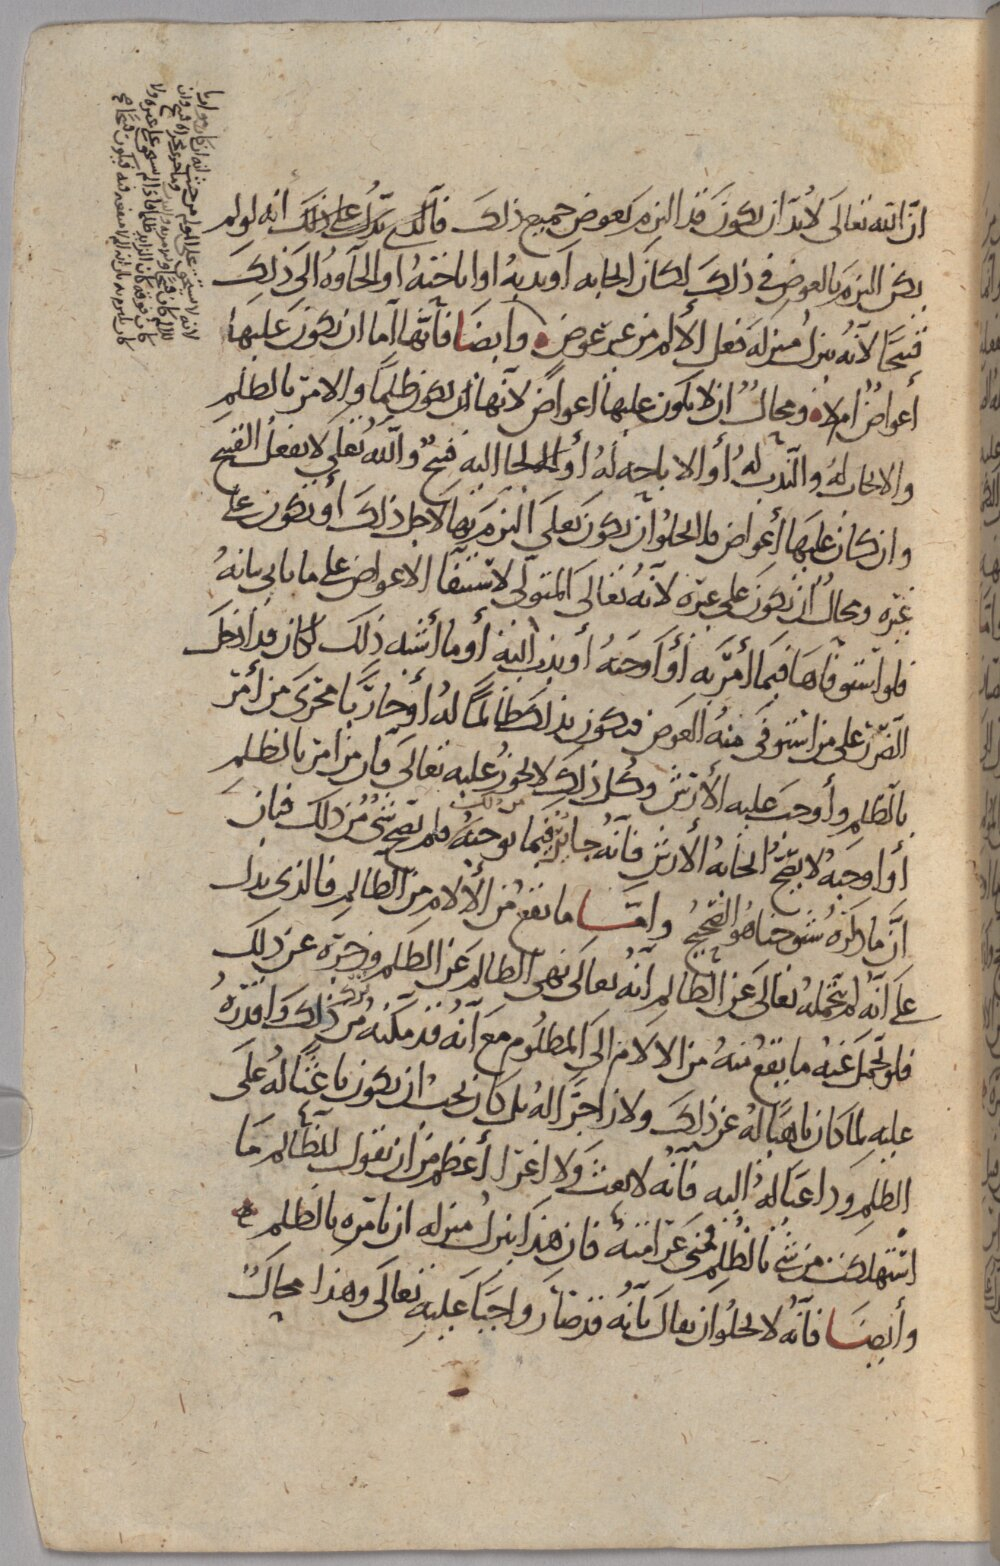 ان الله تعالى لابد ان يكون قد التزم بعوض جميع ذلك فالذي يدل على ذلك انه لو لم
يكن التزم بالعوض في ذلك لكان ايجابه او ندبه او اباحته او الجاوه الى ذلك
قبيحا لانه ينزل منزلة فعل الألم من غير عوض وايضا فانها اما ان يكون عليها
أعواض ام لا ومحال ان لا يكون عليها اعواض لانها ان يكون ظلما والامر بالظلم
والايجاب له والندب له أو الاباحة له أو الالجا اليه قبيح والله تعالى لا يفعل القبيح
وان كان عليها أعواض فلا يخلو ان يكون تعالى التزم بها لاجل ذلك أو يكون على
غيره ومحال ان يكون على غيره لانه تعالى المتولي لاستيفا الاعواض على ما ياتي بيانه
فلو استوفاها فيما أمر به أو أوجبه أو ندب اليه أو ما أشبه ذلك لكان قد ادخل
الضرر على من استوفى منه العوض فيكون بذلك ظالما له أو جاريا مجرى من أمر
بالظلم وأوجب عليه الأرش وكل ذلك لا يجوز عليه تعالى فان من امر بالظلم
أو اوجبه لا يقبح ايجابه الأرش فانه جائز فيما يوجبه من ذلك ولم يقبح شي من ذلك فبان
ان ما ذكره شيوخنا هو الصحيح واما ما يقع من الألام من الظالم فالذي يدل
على انه لم يتحمله تعالى عن الظالم انه تعالى نهى الظالم عن الظلم وزجره عن ذلك
فلو تحمل عنه ما يقع منه من الالام الى المظلوم مع انه قد مكنه من ذلك واقدره
عليه لما كان ناهيا له عن ذلك ولا زاجرا له بل كان يجب ان يكون باعثا له على
الظلم وداعيا له اليه فانه لا بعث ولا اغرا أعظم من ان يقول للظالم ما
استهلكت من شي بالظلم فعلي غرامته فان هذا ينزل منزلة ان يامره بالظلم
وأيضا فانه لا يخلو ان يقال بانه قد صار واجبا عليه تعالى وهذا محال